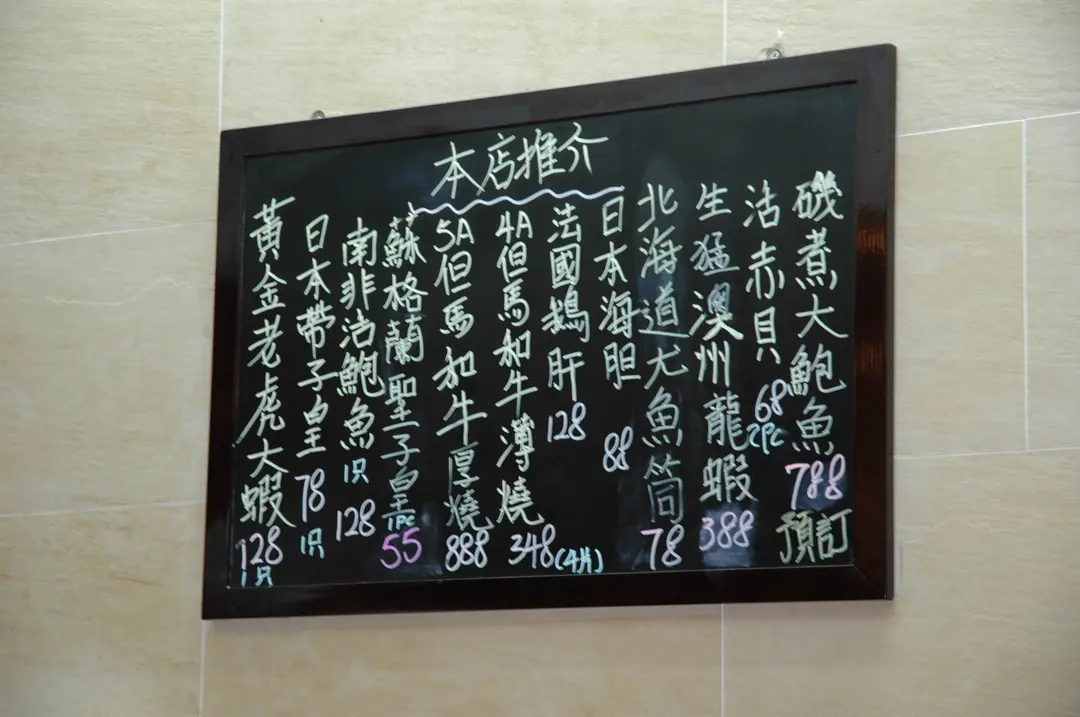 本店推介
磯煮大鮑魚 788 預訂
活赤貝 68 2PC
生猛澳州龍蝦 388
北海道尤魚筒 78
日本海胆 88
法國鵝肝 128
4A但馬和牛薄燒 348(4片)
5A但馬和牛厚燒 888
蘇格蘭聖子皇 1PC 55
南非活鮑魚 1只 128
日本帶子皇 78 1只
黃金老虎大蝦 128 1只